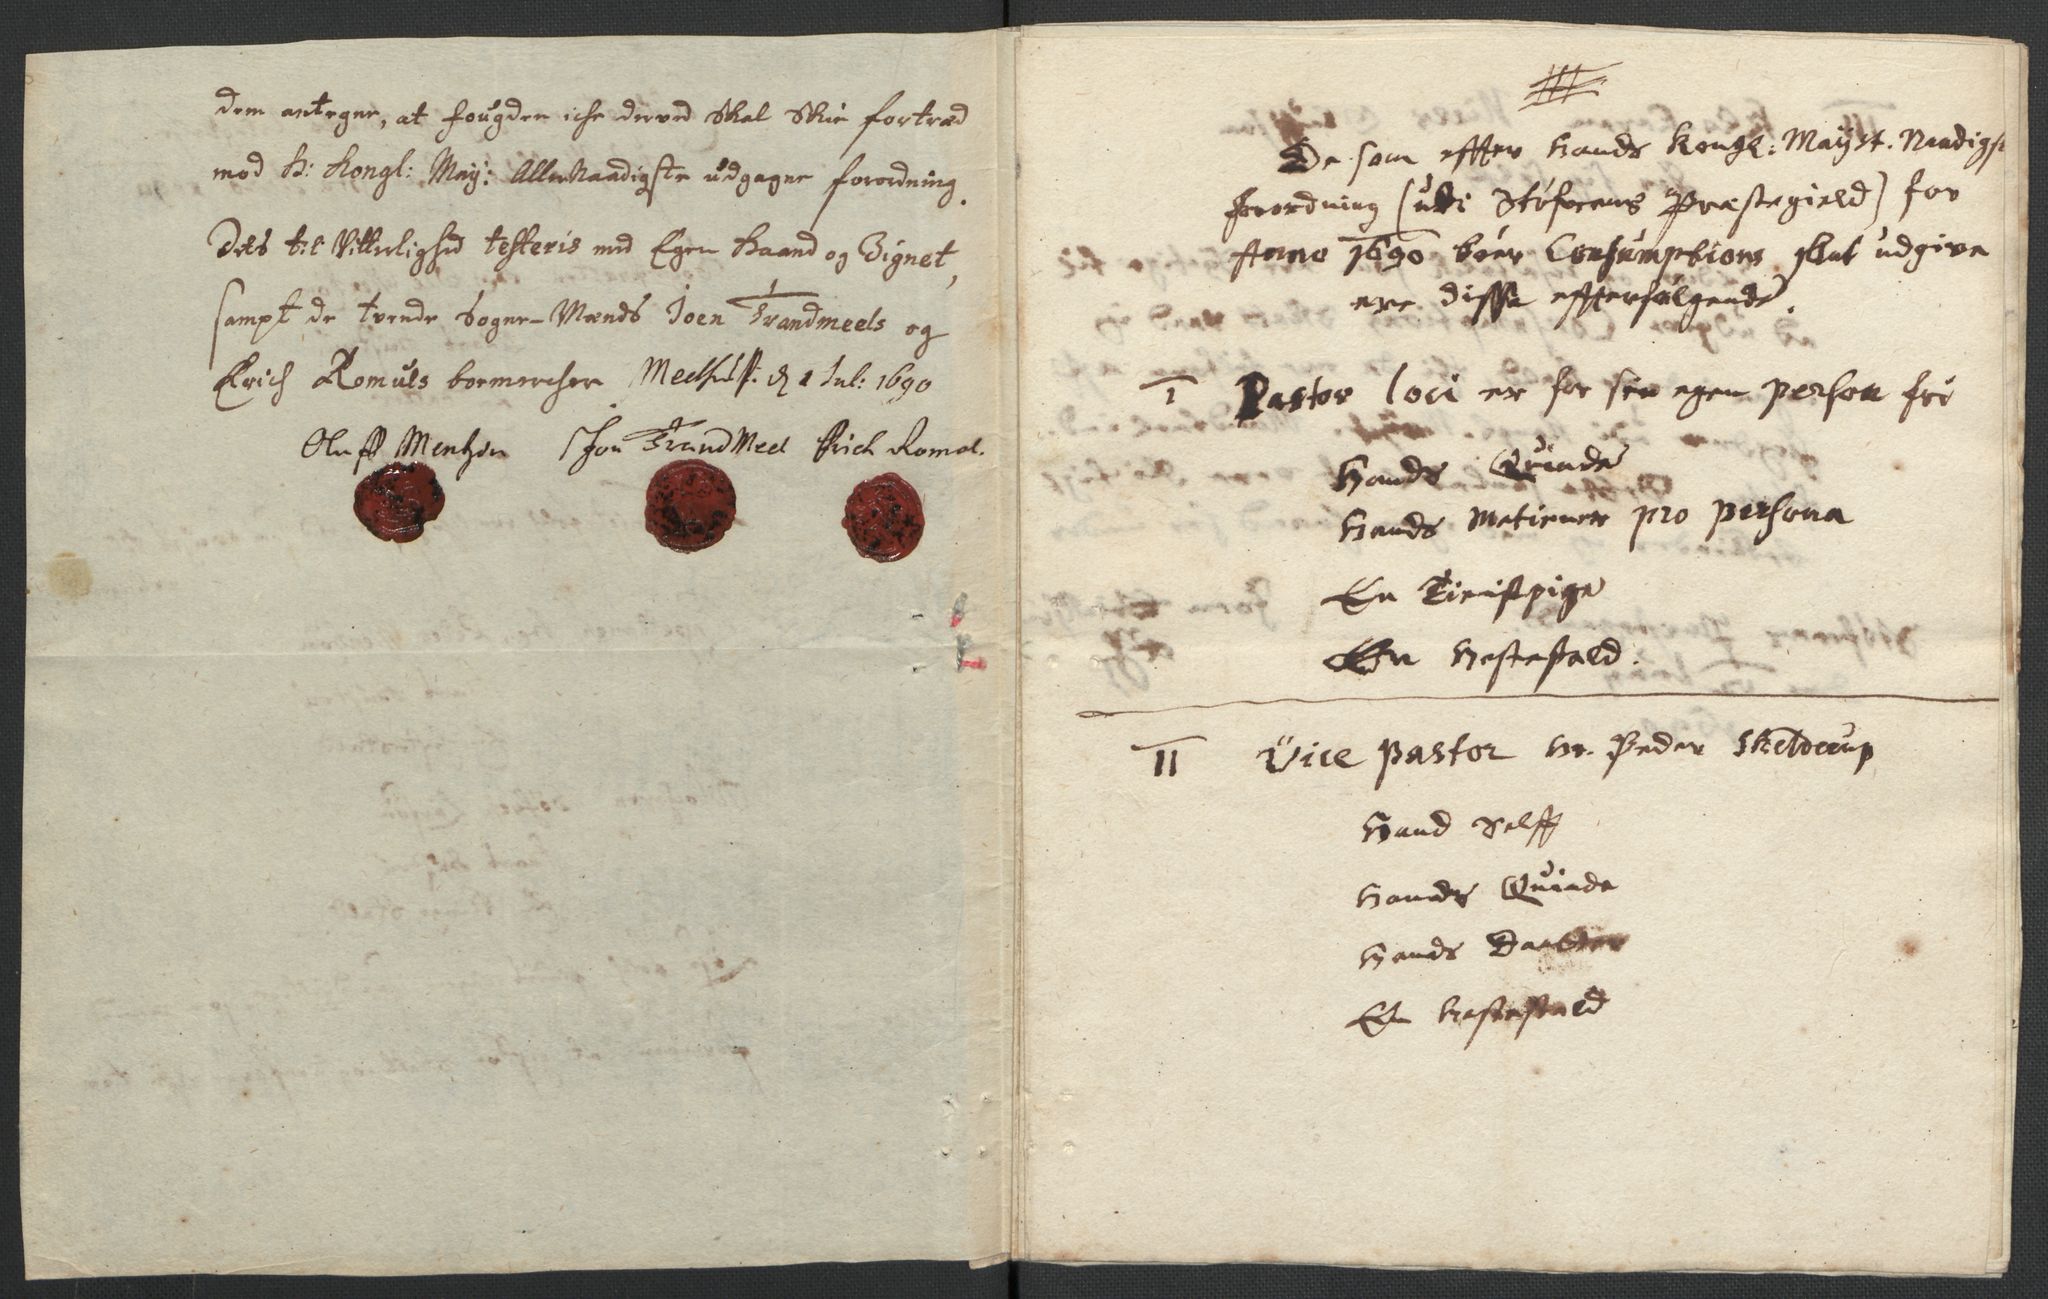 dem antegne, at fougden iche derved skal skie fortræd
mod H: Kongl: May: Allernaadigste udgagne forordning.
Dets til Vitterlighed testeris med Egen Haand og Zignet,
sampt de tvende Sogne-Mænds Joen Trandmeels og
Erich Romuls boemercher Melhuss. d 1 Jul: 1690
Oluff Mentzen Jon TrandMeel Erich Romol.
De som effter hands Kongl: Mayst. Naadigst
forordning (udi Støferens Præstegield) for
Anno 1690 bøer Consumptions skat udgive
ere disse effterfølgende.
I Pastor loci er for sin egen person fri
Hands Quinde
Hands Metiener pro persona
En Tienistpige
En Hestestald.
II Vice Pastor Hr. Peder Skelderup
Hand Selff
Hands Quinde
Hands Daatter
En hestestald